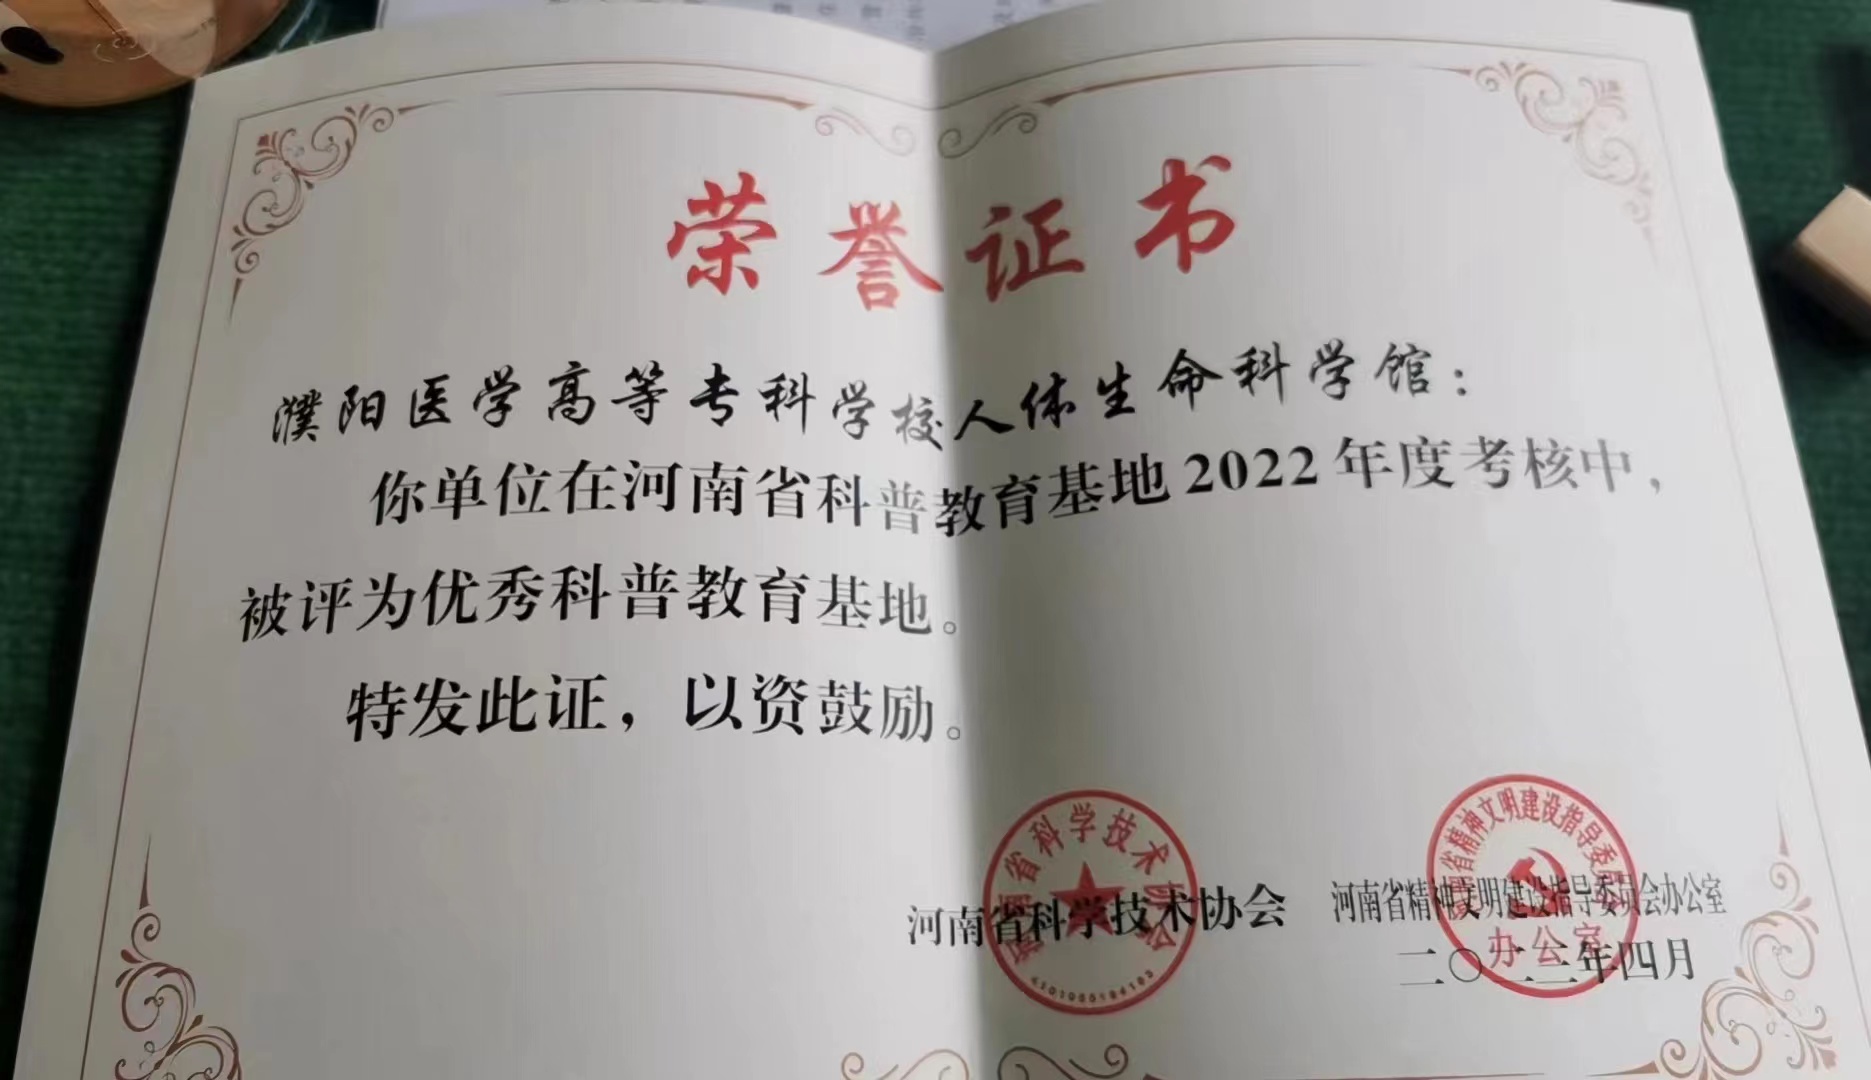 荣誉证书
濮阳医学高等专科学校人体生命科学馆：
你单位在河南省科普教育基地2022年度考核中，
被评为优秀科普教育基地。
特发此证，以资鼓励。
河南省科学技术协会 河南省精神文明建设指导委员会办公室
二〇二三年四月
河南省科学技术协会
省精神文明建设指导委员会
办公室